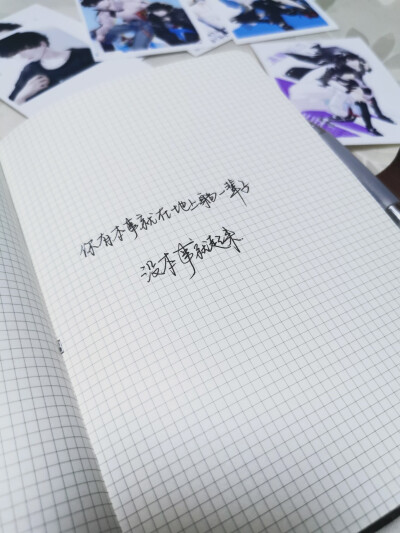 你有本事就在地上躺一辈子
没本事就起来